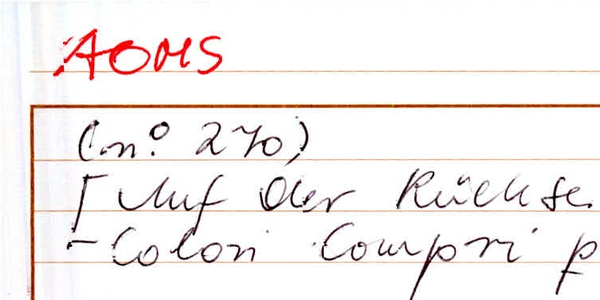 AOMS
(n.º 270)
[Auf der Rückse
-Colori Compri p